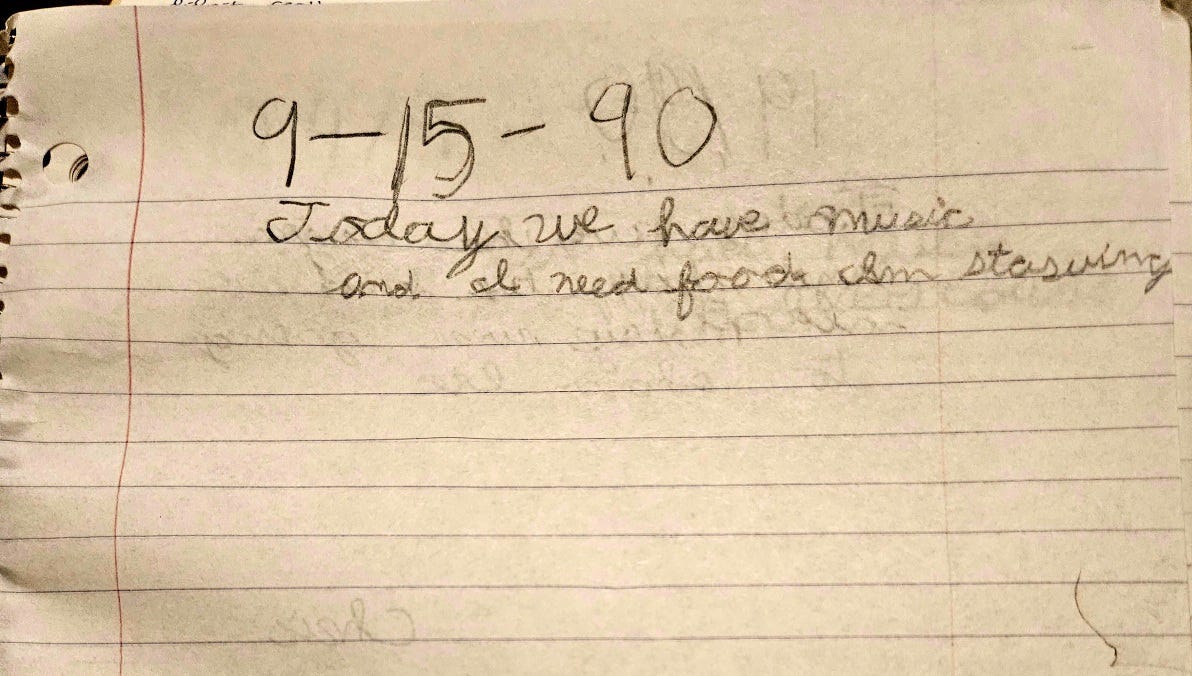 9-15-90
Today we have music
and I need food Im starving